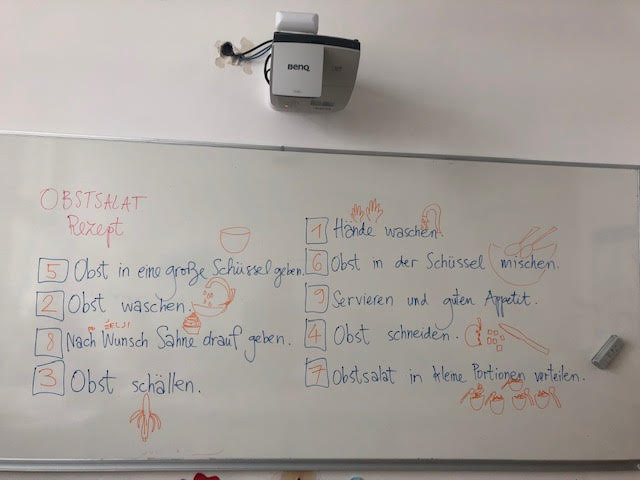 BenQ
OBSTSALAT
Rezept
5 Obst in eine große Schüssel geben.
2 Obst waschen.
PO ŽELJI
8 Nach Wunsch Sahne drauf geben.
3 Obst schällen.
1 Hände waschen.
6 Obst in der Schüssel mischen.
9 Servieren und guten Appetit.
4 Obst schneiden.
7 Obstsalat in kleine Portionen verteilen.